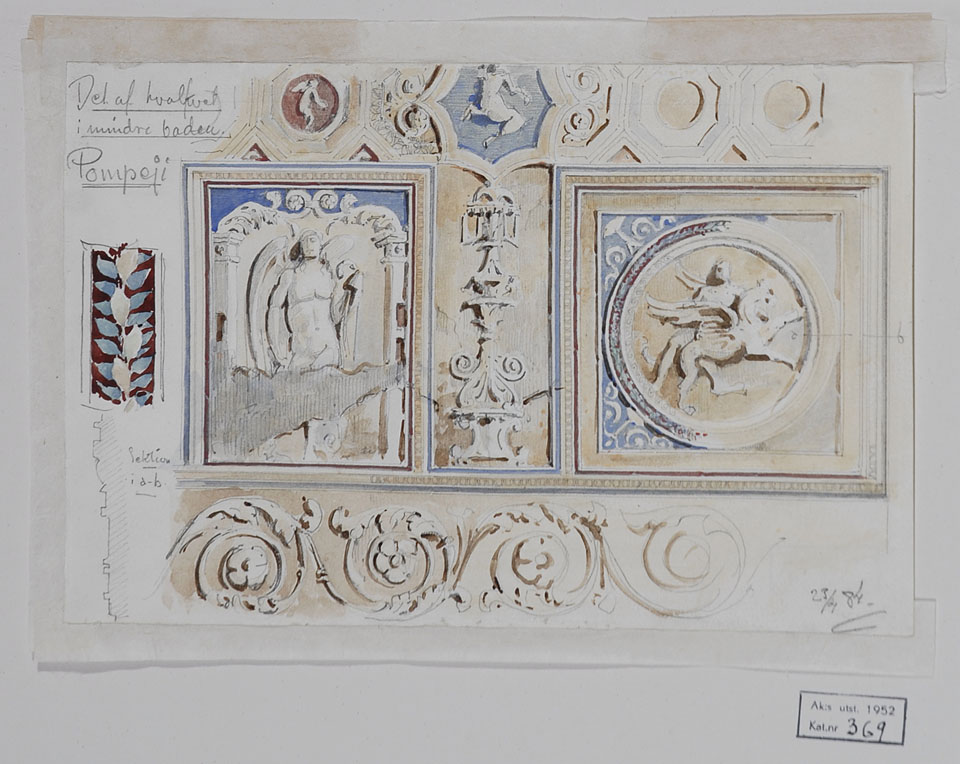 Del af hvalfvet
i mindre baden.
Pompeji
b
Sektion
i a-b.
23/4 84.
Ak:s utst. 1952
Kat.nr 369